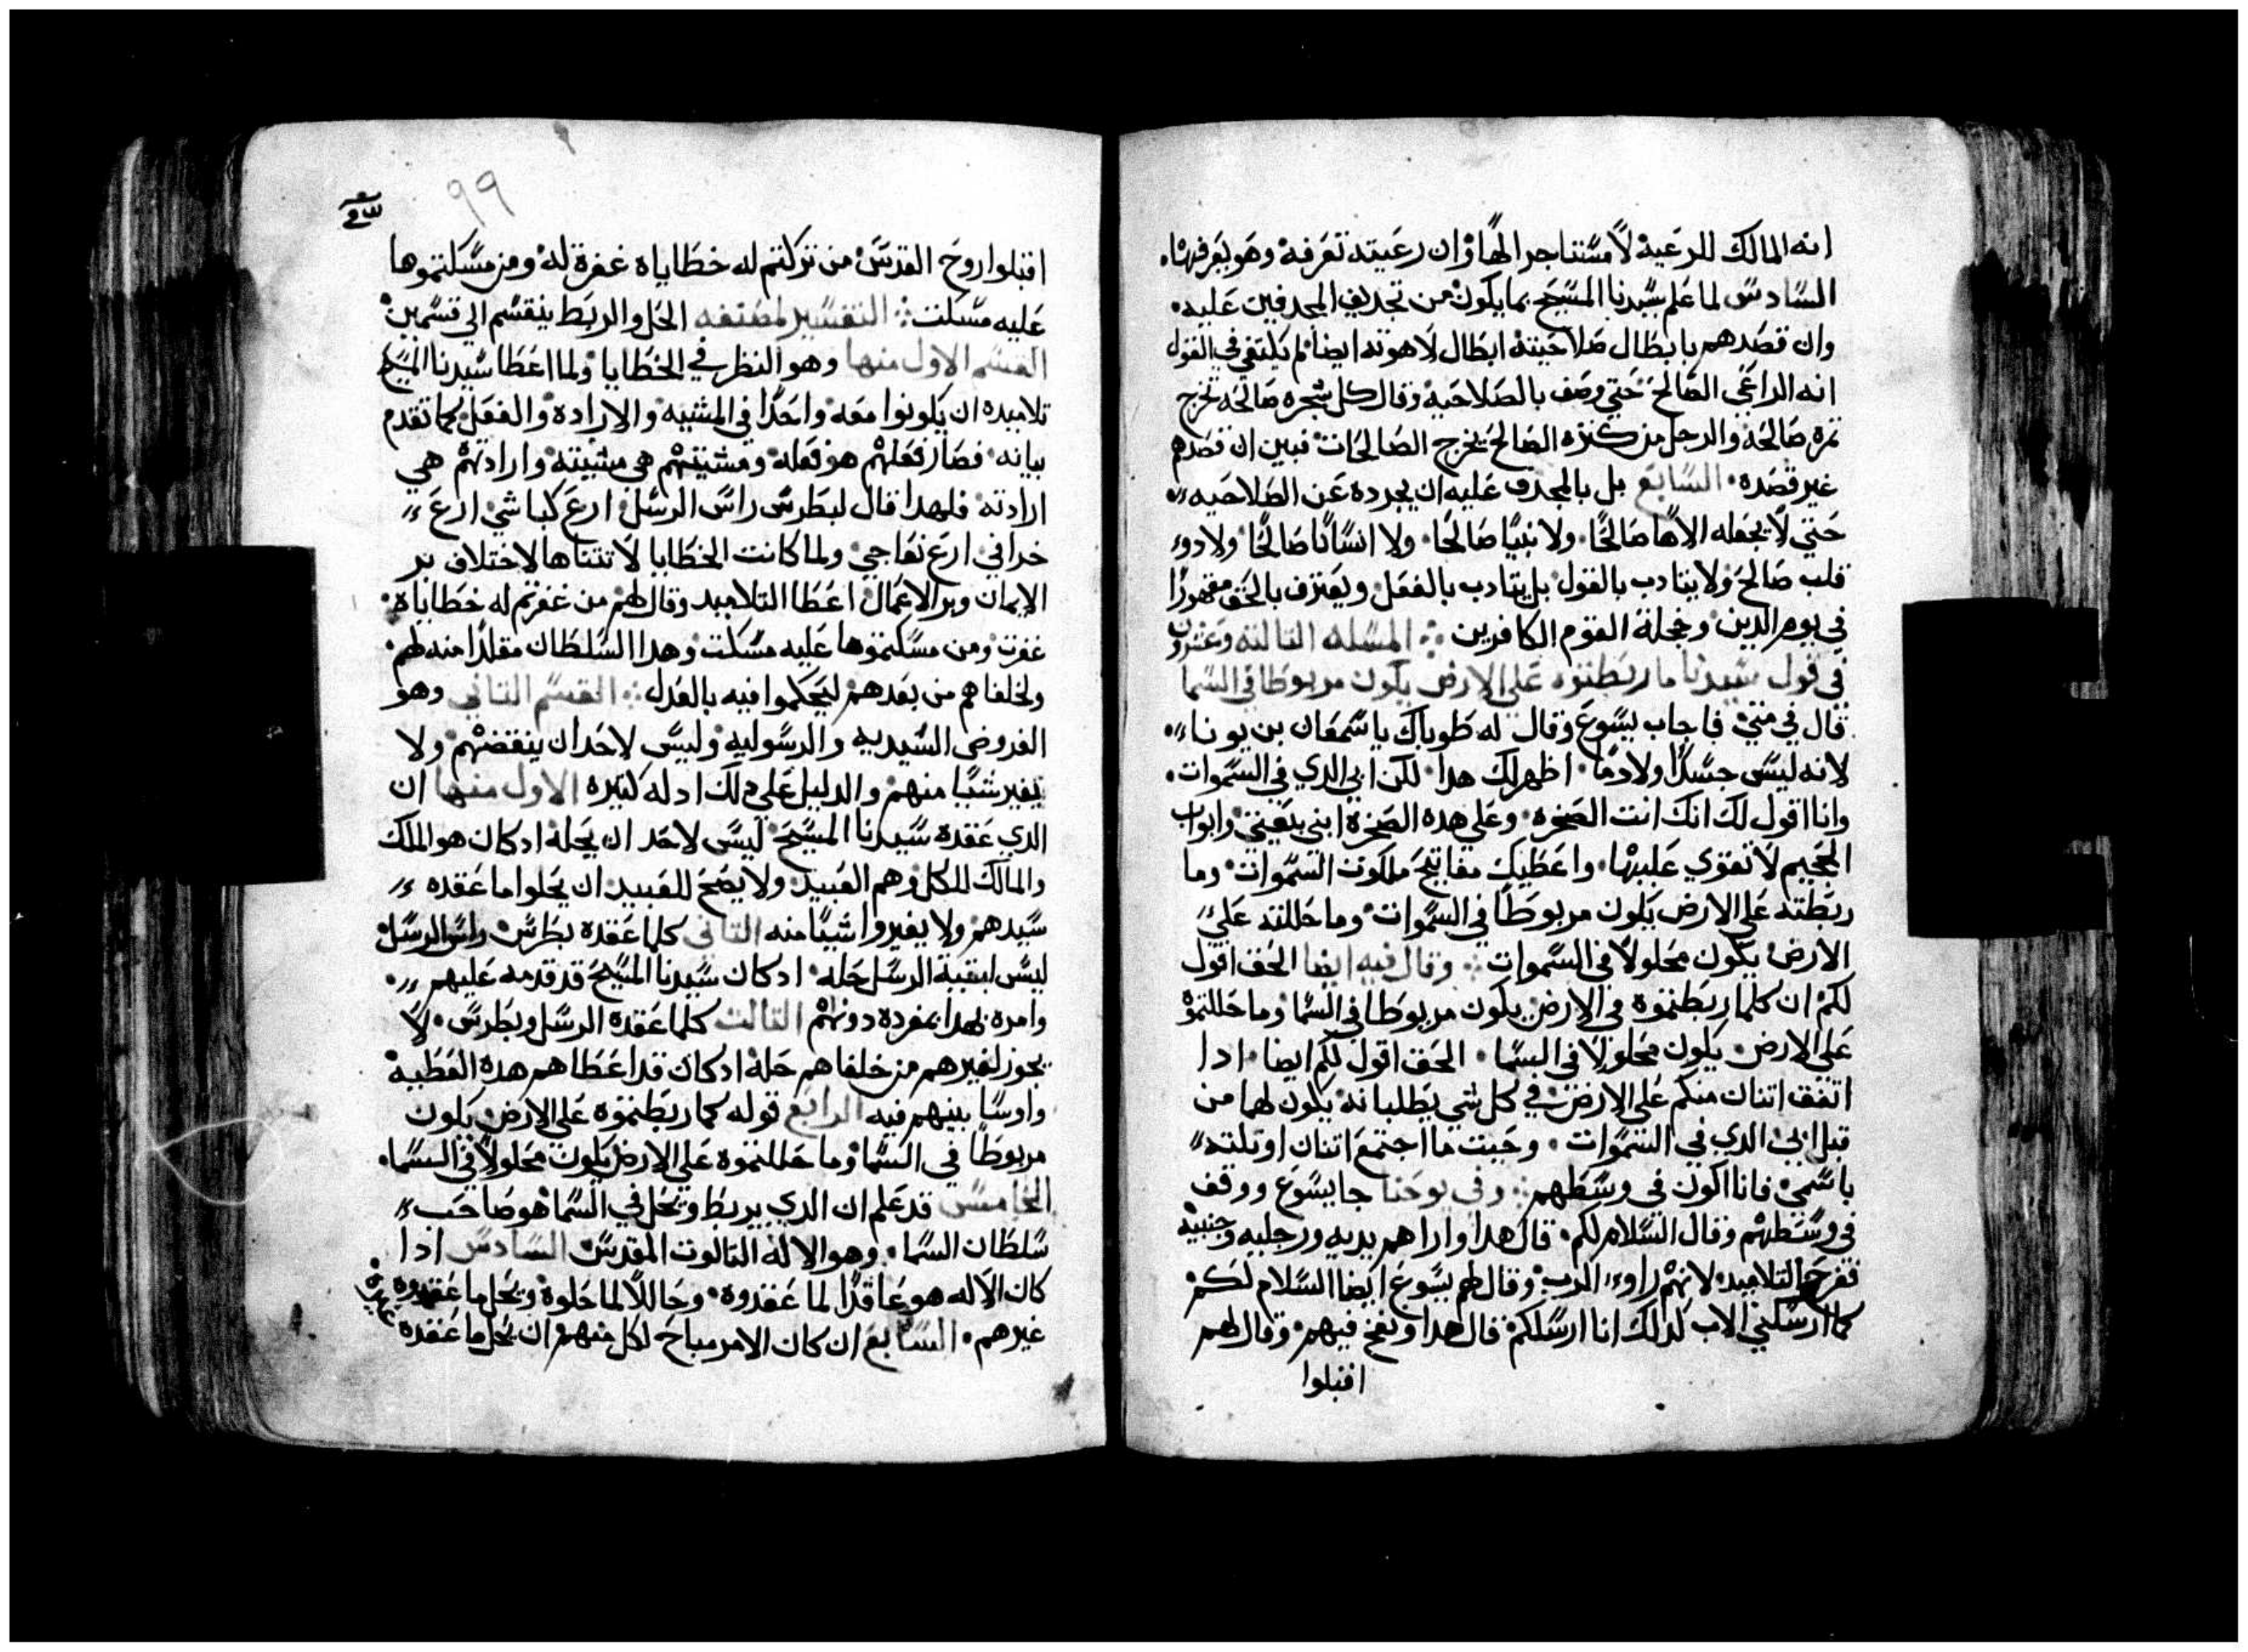 انه المالك للرعية لا مستاجر الها وان رعيته تعرفه وهو يعرفها
السادس لما علم سيدنا المسيح بما يكون من تجديف المجدفين عليه
وان قصدهم بابطال صلاحيته ابطال لاهوته ايضا لم يكتفي في القول
انه الراعي الصالح حتي وصف بالصلاحيه وقال كل شجره صالحه تخرج
ثمره صالحه والرجل من كنزه الصالح يخرج الصالحات فبين ان قصدهم
غير قصده السابع بل بالمجدف عليه ان يجرده عن الصلاحيه
حتي لا يجعله الاها صالحا ولا نبيا صالحا ولا انسانا صالحا ولا دوء
قلب صالح ولا يتادب بالقول بل يتادب بالفعل ويعترف بالحق مقهورا
في يوم الدين وخجلة القوم الكافرين المسله التالته وعشرون
في قول سيدنا ما ربطتوه علي الارض يكون مربوطا في السما
قال في متي فاجاب يسوع وقال له طوباك ياسمعان بن يونا
لانه ليس جسدا ولا دما اظهر لك هدا لكن ابي الدي في السموات
وانا اقول لك انك انت الصخره وعلي هده الصخرة ابني بيعتي وابواب
الجحيم لا تقوي عليها واعطيك مفاتيح ملكوت السموات وما
ربطته علي الارض يكون مربوطا في السموات وما حللته علي
الارض يكون محلولا في السموات وقال فيه ايضا الحق اقول
لكم ان كلما ربطتموه في الارض يكون مربوطا في السما وما حللتموه
علي الارض يكون محلولا في السما الحق اقول لكم ايضا ادا
اتفق اتنان منكم علي الارض في كل شي يطلبانه يكون لهما من
قبل ابي الدي في السموات وحيت ما اجتمع اتنان او تلته
باسمي فانا اكون في وسطهم وفي يوحنا جا يسوع ووقف
في وسطهم وقال السلام لكم قال هدا واراهم يديه ورجليه وجنبيه
ففرح التلاميد لانهم راوء الرب وقال لهم يسوع ايضا السلام لكم
كما ارسلني الاب كدلك انا ارسلكم قال هدا ونفخ فيهم وقال لهم
اقبلوا
٩٩
اقبلوا روح القدس من تركتم له خطاياه غفرة له ومن مسكتموها
عليه مسكت التفسير لمصنفه الحل والربط ينقسم الي قسمين
القسم الاول منها وهو النظر في الخطايا ولما اعطا سيدنا المسيح
تلاميده ان يكونوا معه واحدا في المشيه والارادة والفعل كما تقدم
بيانه فصار فعلهم هو فعله ومشيتهم هي مشيته وارادتهم هي
ارادته فلهدا قال لبطرس راس الرسل ارع كباشي ارع
خرافي ارع نعاجي ولما كانت الخطايا لا تتناها لاختلاف بر
الايمان وبر الاعمال اعطا التلاميد وقال لهم من غفرتم له خطاياه
غفرت ومن مسكتموها عليه مسكت وهدا السلطان مقلدا منه لهم
ولخلفاهم من بعدهم ليحكموا فيه بالعدل القسم التاني وهو
الفروض السيديه والرسوليه وليس لاحد ان ينقضهم ولا
يغير شيا منهم والدليل علي دلك ادله كتيره الاول منها ان
الدي عقده سيدنا المسيح ليس لاحد ان يحله ادكان هو الملك
والمالك للكل وهم العبيد ولا يصح للعبيد ان يحلوا ما عقده
سيدهم ولا يغيروا شيا منه التاني كلما عقده بطرس راس الرسل
ليس لبقية الرسل حله ادكان سيدنا المسيح قد قدمه عليهم
وامره بهدا بمفرده دونهم التالت كلما عقده الرسل وبطرس لا
يجوز لغيرهم من خلفاهم حله ادكان قد اعطاهم هده العطيه
واوسا بينهم فيه الرابع قوله كما ربطتموه علي الارض يكون
مربوطا في السما وما حللتموه علي الارض يكون محلولا في السما
الخامس قد علم ان الدي يربط ويحل في السما هو صاحب
سلطان السما وهو الاله التالوت المقدس السادس ادا
كان الاله هو عاقدا لما عقدوه وحاللا لما حلوه ويحل ما عقدوه
غيرهم السابع ان كان الامر مباح لكل منهم ان يحل ما عقده